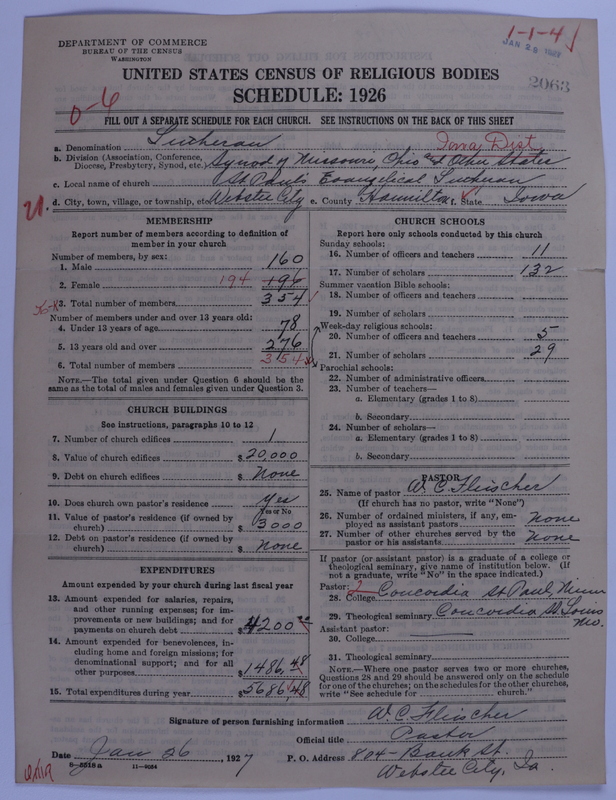 DEPARTMENT OF COMMERCE
BUREAU OF THE CENSUS
WASHINGTON
1-1-4
JAN 29 1927
2063
UNITED STATES CENSUS OF RELIGIOUS BODIES
SCHEDULE: 1926
0-6
FILL OUT A SEPARATE SCHEDULE FOR EACH CHURCH. SEE INSTRUCTIONS ON THE BACK OF THIS SHEET
a. Denomination Lutheran
Iowa Dist
b. Division (Association, Conference, Diocese, Presbytery, Synod, etc.) Synod of Missouri Ohio & Other States
c. Local name of church St Pauls Evangelical Lutheran
d. City, town, village, or township, etc. Webster City e. County Hamilton f. State Iowa
MEMBERSHIP
Report number of members according to definition of
member in your church
Number of members, by sex:
1. Male 160
2. Female 194 196
3. Total number of members 354
Number of members under and over 13 years old:
4. Under 13 years of age 78
5. 13 years old and over 276
6. Total number of members 354
NOTE.—The total given under Question 6 should be the
same as the total of males and females given under Question 3.
CHURCH BUILDINGS
See instructions, paragraphs 10 to 12
7. Number of church edifices 1
8. Value of church edifices $ 20,000
9. Debt on church edifices $ None
10. Does church own pastor's residence Yes
Yes or No
11. Value of pastor's residence (if owned by
church) $ 3000
12. Debt on pastor's residence (if owned by
church) $ None
EXPENDITURES
Amount expended by your church during last fiscal year
13. Amount expended for salaries, repairs,
and other running expenses; for im-
provements or new buildings; and for
payments on church debt $ 4200
14. Amount expended for benevolences, in-
cluding home and foreign missions; for
denominational support; and for all
other purposes $ 1486.48
15. Total expenditures during year $ 5686.48
CHURCH SCHOOLS
Report here only schools conducted by this church
Sunday schools:
16. Number of officers and teachers 11
17. Number of scholars 132
Summer vacation Bible schools:
18. Number of officers and teachers
19. Number of scholars
Week-day religious schools:
20. Number of officers and teachers 5
21. Number of scholars 29
Parochial schools:
22. Number of administrative officers
23. Number of teachers—
a. Elementary (grades 1 to 8)
b. Secondary
24. Number of scholars—
a. Elementary (grades 1 to 8)
b. Secondary
PASTOR
25. Name of pastor W. C. Flischer
(If church has no pastor, write "None")
26. Number of ordained ministers, if any, em-
ployed as assistant pastors none
27. Number of other churches served by the
pastor or his assistants none
If pastor (or assistant pastor) is a graduate of a college or
theological seminary, give name of institution below. (If
not a graduate, write "No" in the space indicated.)
Pastor:
28. College Concordia St Paul, Minn
29. Theological seminary Concordia St. Louis Mo.
Assistant pastor:
30. College
31. Theological seminary
NOTE.—Where one pastor serves two or more churches,
Questions 28 and 29 should be answered only on the schedule
for one of the churches; on the schedules for the other churches,
write "See schedule for church."
Signature of person furnishing information W. C. Flischer
Official title Pastor
Date Jan 26, 1927 P. O. Address 804 - Bank St.
Webster City, Ia.
8—5518 a 11—9064